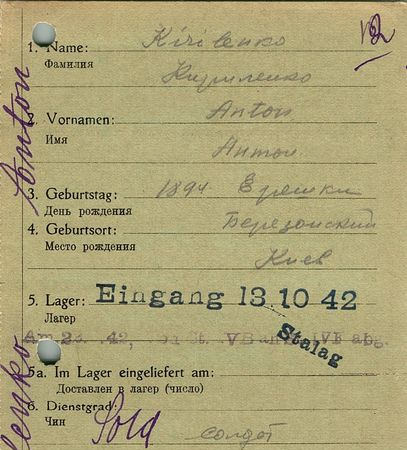 132
1. Name: Kirilenko
Фамилия Кириленко
2. Vornamen: Anton
Имя Антон
3. Geburtstag: 1894
День рождения
4. Geburtsort: Березанский
Место рождения Киев
5. Lager: Eingang 13. 10 42
Лагер Stalag
Am 42, St. VB an IVB abg.
5a. Im Lager eingeliefert am:
Доставлен в лагер (число)
6. Dienstgrad: Sold
Чин солдат
Anton
lenko